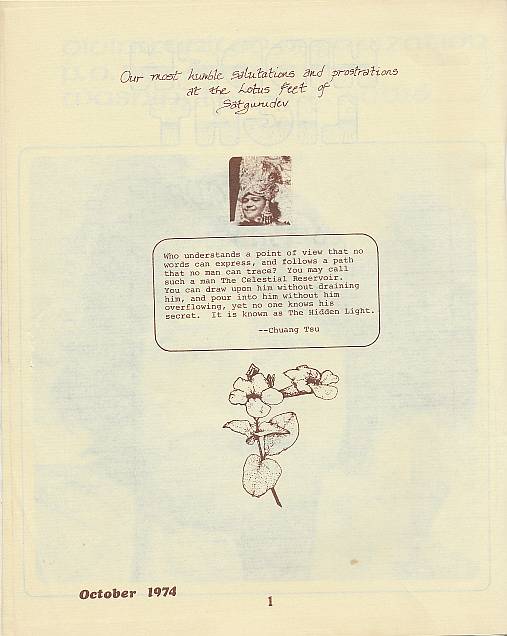 Our most humble salutations and prostrations
at the Lotus Feet of
Satgurudev
Who understands a point of view that no
words can express, and follows a path
that no man can trace?  You may call
such a man The Celestial Reservoir.
You can draw upon him without draining
him, and pour into him without him
overflowing, yet no one knows his
secret.  It is known as The Hidden Light.
--Chuang Tsu
October 1974
1